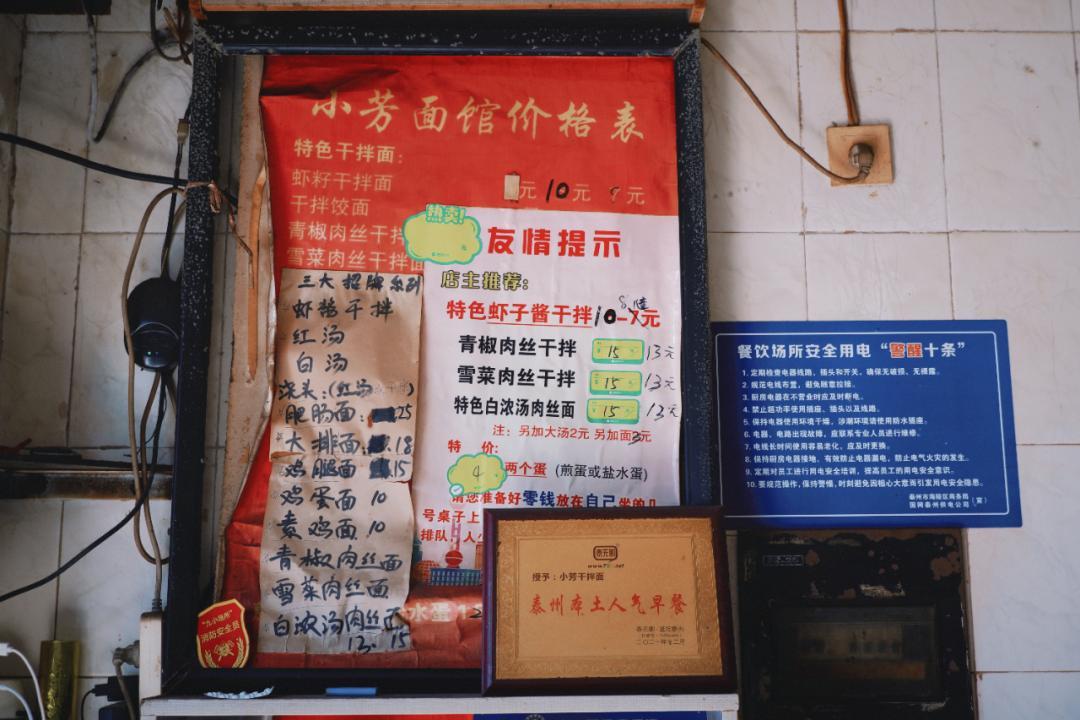 小芳面馆价格表
特色干拌面:
虾籽干拌面
元 10元 8元
干拌饺面
青椒肉丝干拌
雪菜肉丝干拌面
三大招牌系列
虾酱干拌
红汤
白汤
浇头:(红汤
肥肠面: 25
大排面 18
鸡腿面 15
鸡蛋面 10
素鸡面 10
青椒肉丝面
雪菜肉丝面
白浓汤肉丝面
13. 15
热卖!
友情提示
店主推荐:
特色虾子酱干拌10-7元
青椒肉丝干拌 15 13元
雪菜肉丝干拌 15 13元
特色白浓汤肉丝面 15 13元
注: 另加大汤2元 另加面2元
特 价:
4 两个蛋 (煎蛋或盐水蛋)
请您准备好零钱放在自己坐的几
号桌子上
排队,人
水蛋
"九小场所"
消防安全员
泰无聊
授予:小芳干拌面
泰州本土人气早餐
二〇二一年七二月
餐饮场所安全用电"警醒十条"
1. 定期检查电器线路、插头和开关,确保无破损、无裸露。
2. 规范电线布置,避免随意拉接。
3. 厨房电器在不营业时应及时断电。
4. 禁止超功率使用插座、插头以及线路。
5. 保持电器使用环境干燥,涉潮环境请使用防水插座。
6. 电器、电路出现故障,应联系专业人员进行维修。
7. 电线长时间使用容易老化,应及时更换。
8. 保持厨房电器接地,有效防止电器漏电,防止电气火灾的发生。
9. 定期对员工进行用电安全培训,提高员工的用电安全意识。
10. 要规范操作,保持警惕,时刻避免因粗心大意而引发用电安全隐患。
泰州市海陵区商务局
国网泰州供电公司 (宣)